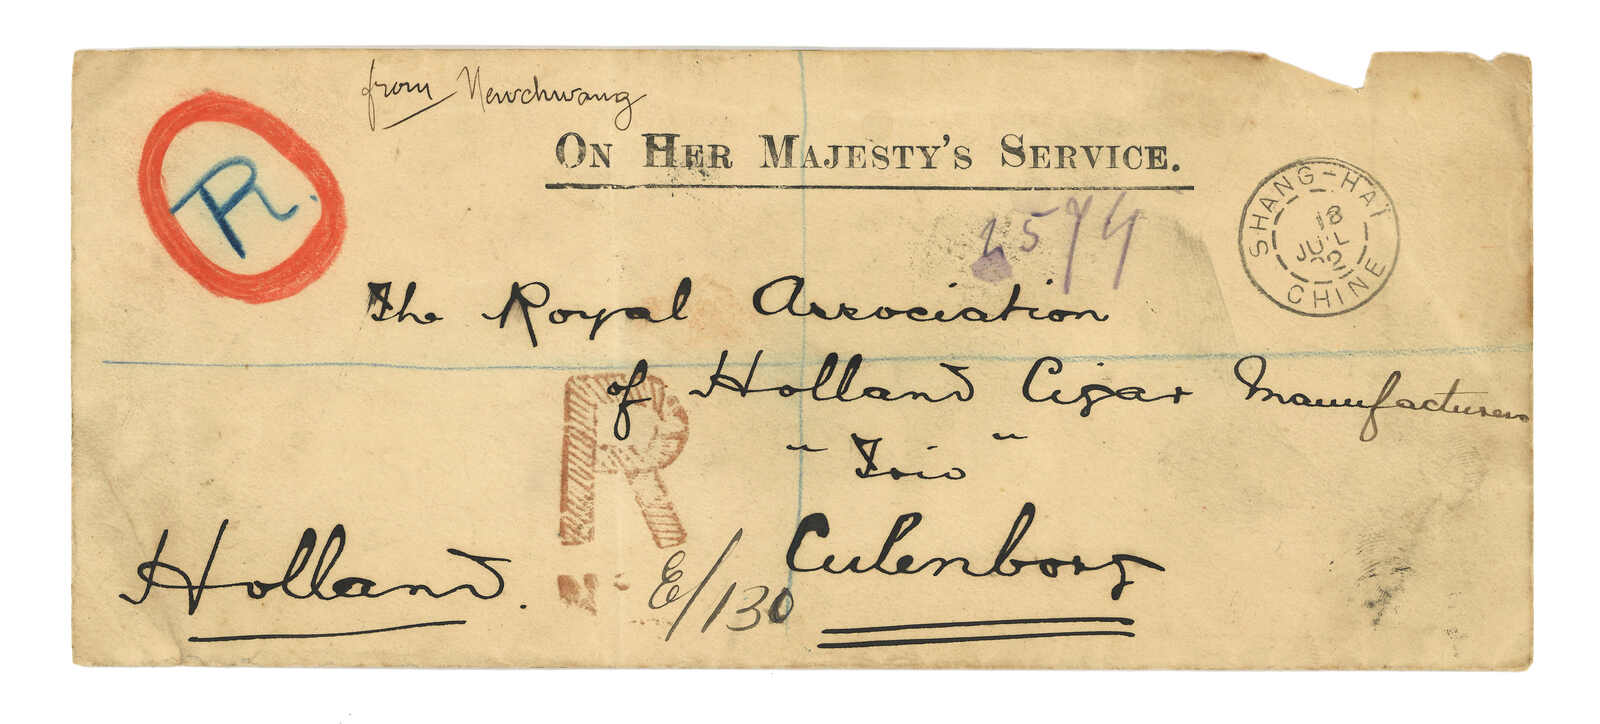 from Newchwang
ON HER MAJESTY'S SERVICE.
R.
SHANG-HAÏ
18
JUIL
02
CHINE
The Royal Association
of Holland Cigar Manufacturers
"Trio"
R
Nº
E/130
Culenborg
Holland.